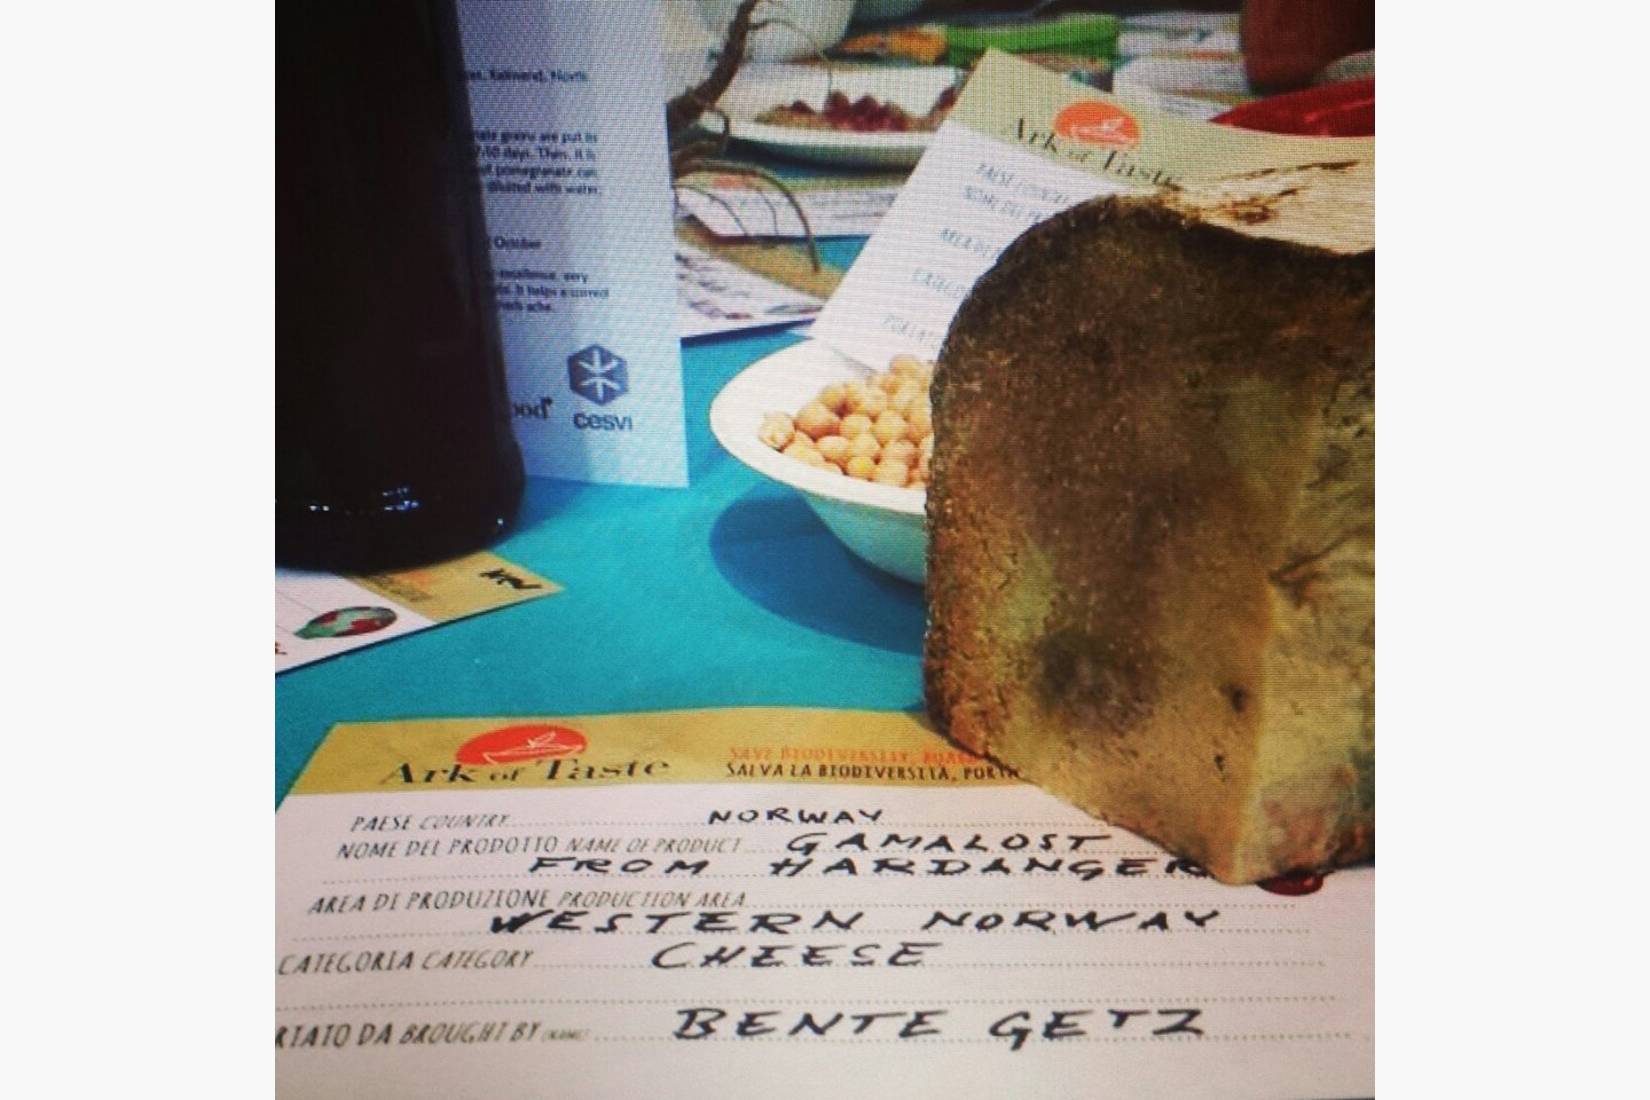 North
grains are put in
days. Then, it is
of pomegranate can
diluted with water.
October
excellence very
It helps
ache.
cesvi
Ark of Taste
PAESE COUNTRY
NOME DEL
AREA DI
Ark of Taste
SAVE BIODIVERSITY,
SALVA LA BIODIVERSITÀ, PORTA
PAESE COUNTRY NORWAY
NOME DEL PRODOTTO NAME OF PRODUCT GAMALOST
FROM HARDANGER
AREA DI PRODUZIONE PRODUCTION AREA
WESTERN NORWAY
CATEGORIA CATEGORY CHEESE
RTATO DA BROUGHT BY (NAME) BENTE GETZ